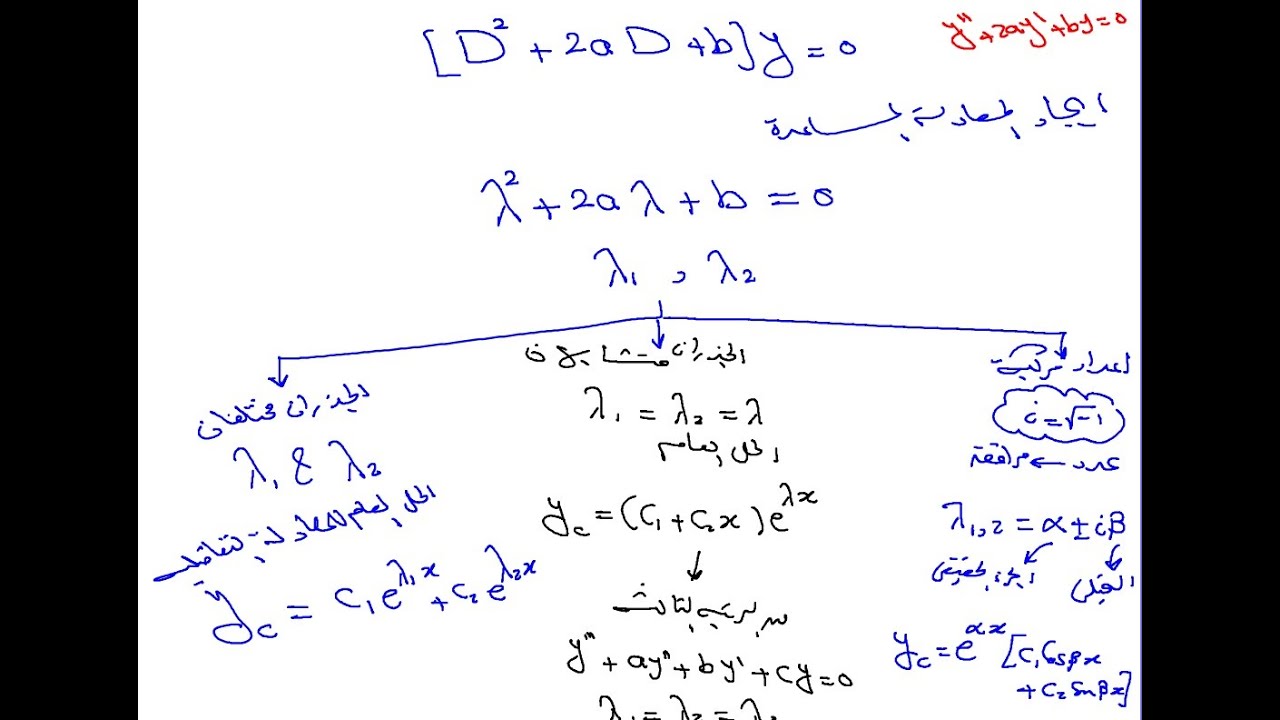 [D² + 2a D + b] y = 0
y" + 2ay' + by = 0
ايجاد المعادلة المساعدة
λ² + 2a λ + b = 0
λ₁ , λ₂
الجذران مختلفان
λ₁ & λ₂
الحل العام للمعادلة التفاضلية
y_c = c₁e^{λ₁x} + c₂e^{λ₂x}
الجذران متشابهان
λ₁ = λ₂ = λ
الحل العام
y_c = (c₁ + c₂x) e^{λx}
من الرتبة الثالثة
y''' + ay" + by' + cy = 0
λ₁ = λ₂ = λ₃
أعداد مركبة
i = √-1
عدد ← مرافقة
λ₁,₂ = α ± iβ
الجزء الحقيقي
التخيلي
y_c = e^{αx} [c₁ Cos βx
+ c₂ Sin βx]